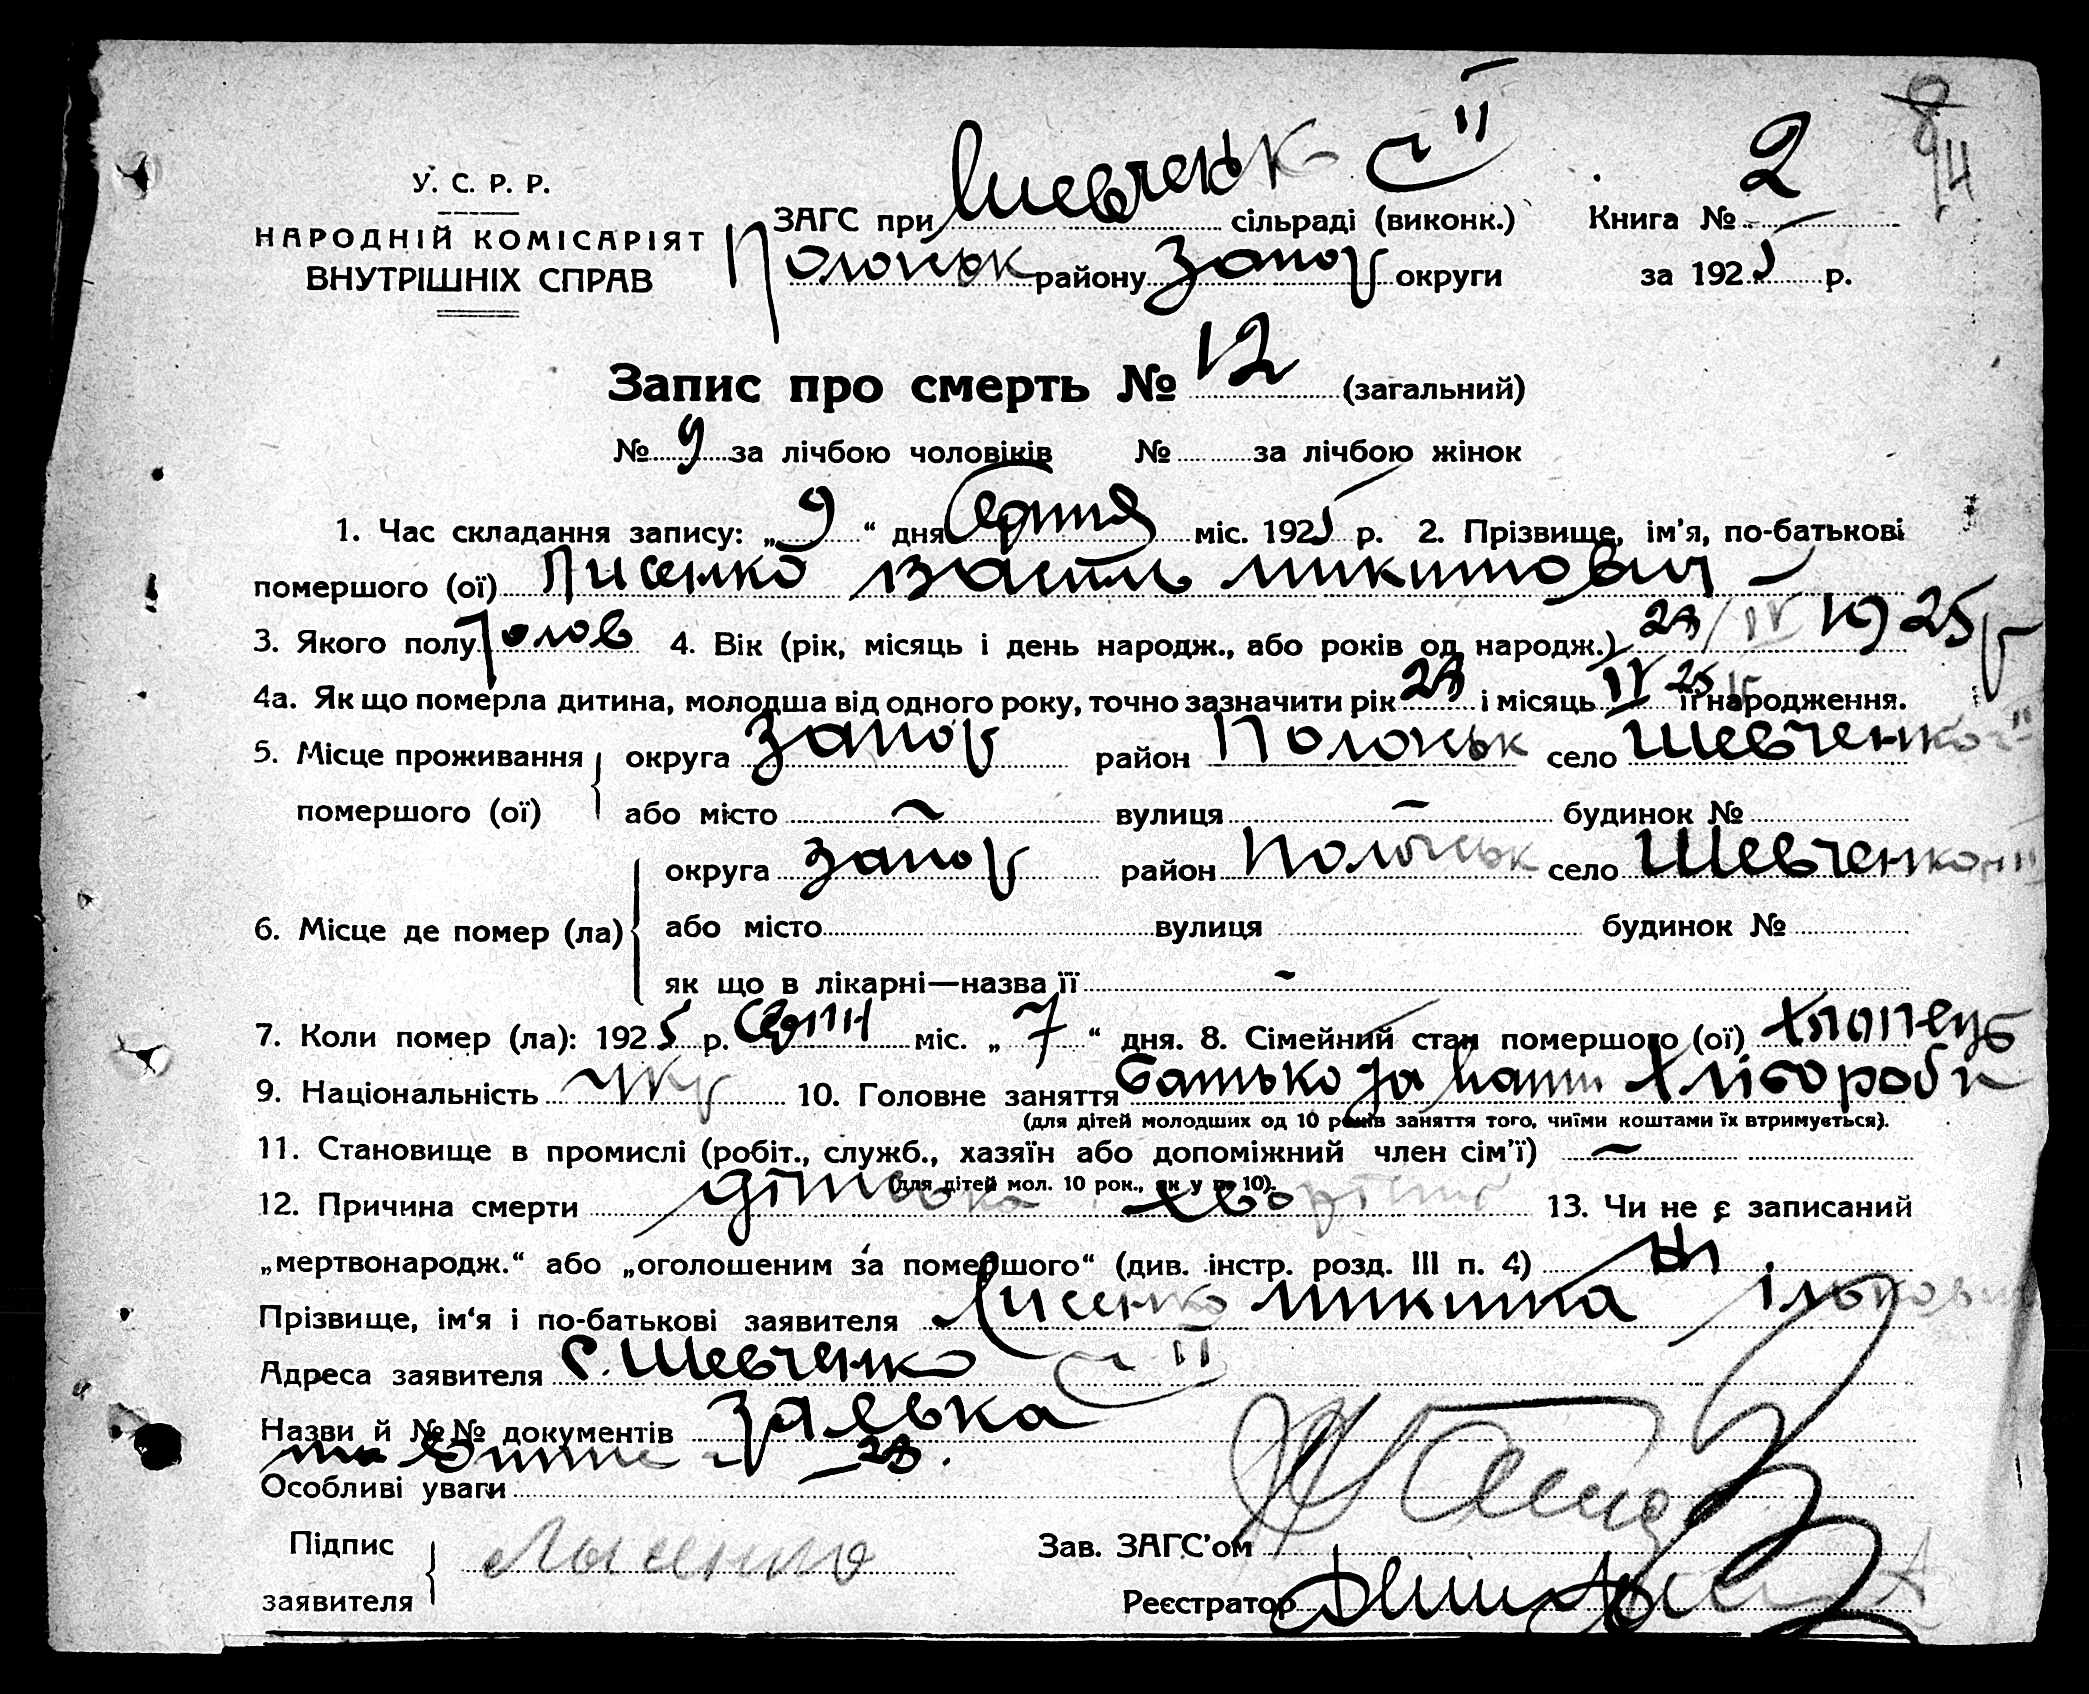 8
94
У. С. Р. Р.
НАРОДНІЙ КОМІСАРІЯТ
ВНУТРІШНІХ СПРАВ
ЗАГС при Шевченк- II сільраді (виконк.) Книга № 2
Полоськ району Запор округи за 1925 р.
Запис про смерть № 12 (загальний)
№ 9 за лічбою чоловіків № за лічбою жінок
1. Час складання запису: „9“ дня Серпня міс. 1925 р. 2. Прізвище, ім'я, по-батькові
помершого (ої) Лисенко Василь Микитович
3. Якого полу чолов 4. Вік (рік, місяць і день народж., або років од народж.) 23/IV 1925 р
4а. Як що померла дитина, молодша від одного року, точно зазначити рік 23 і місяць IV 25 її народження.
5. Місце проживання помершого (ої) округа Запор район Полоськ село Шевченко II
або місто вулиця будинок №
6. Місце де помер (ла) округа Запор район Полоськ село Шевченко II
або місто вулиця будинок №
як що в лікарні—назва її -
7. Коли помер (ла): 1925 р. Серпн міс. „7“ дня. 8. Сімейний стан помершого (ої) Хлопець
9. Національність Укр 10. Головне заняття батько та мати хлібороби
(для дітей молодших од 10 років заняття того, чиїми коштами їх втримується).
11. Становище в промислі (робіт., служб., хазяїн або допоміжний член сім'ї) -
(для дітей мол. 10 рок., як у р. 10).
12. Причина смерти дітська хворість 13. Чи не є записаний
„мертвонародж.“ або „оголошеним за помершого“ (див. інстр. розд. III п. 4) ні
Прізвище, ім'я і по-батькові заявителя Лисенко Микита
Адреса заявителя с. Шевченко II
Назви й №№ документів Заявка
та 23.
Особливі уваги
Підпис заявителя Лысенко
Зав. ЗАГС'ом
Реєстратор